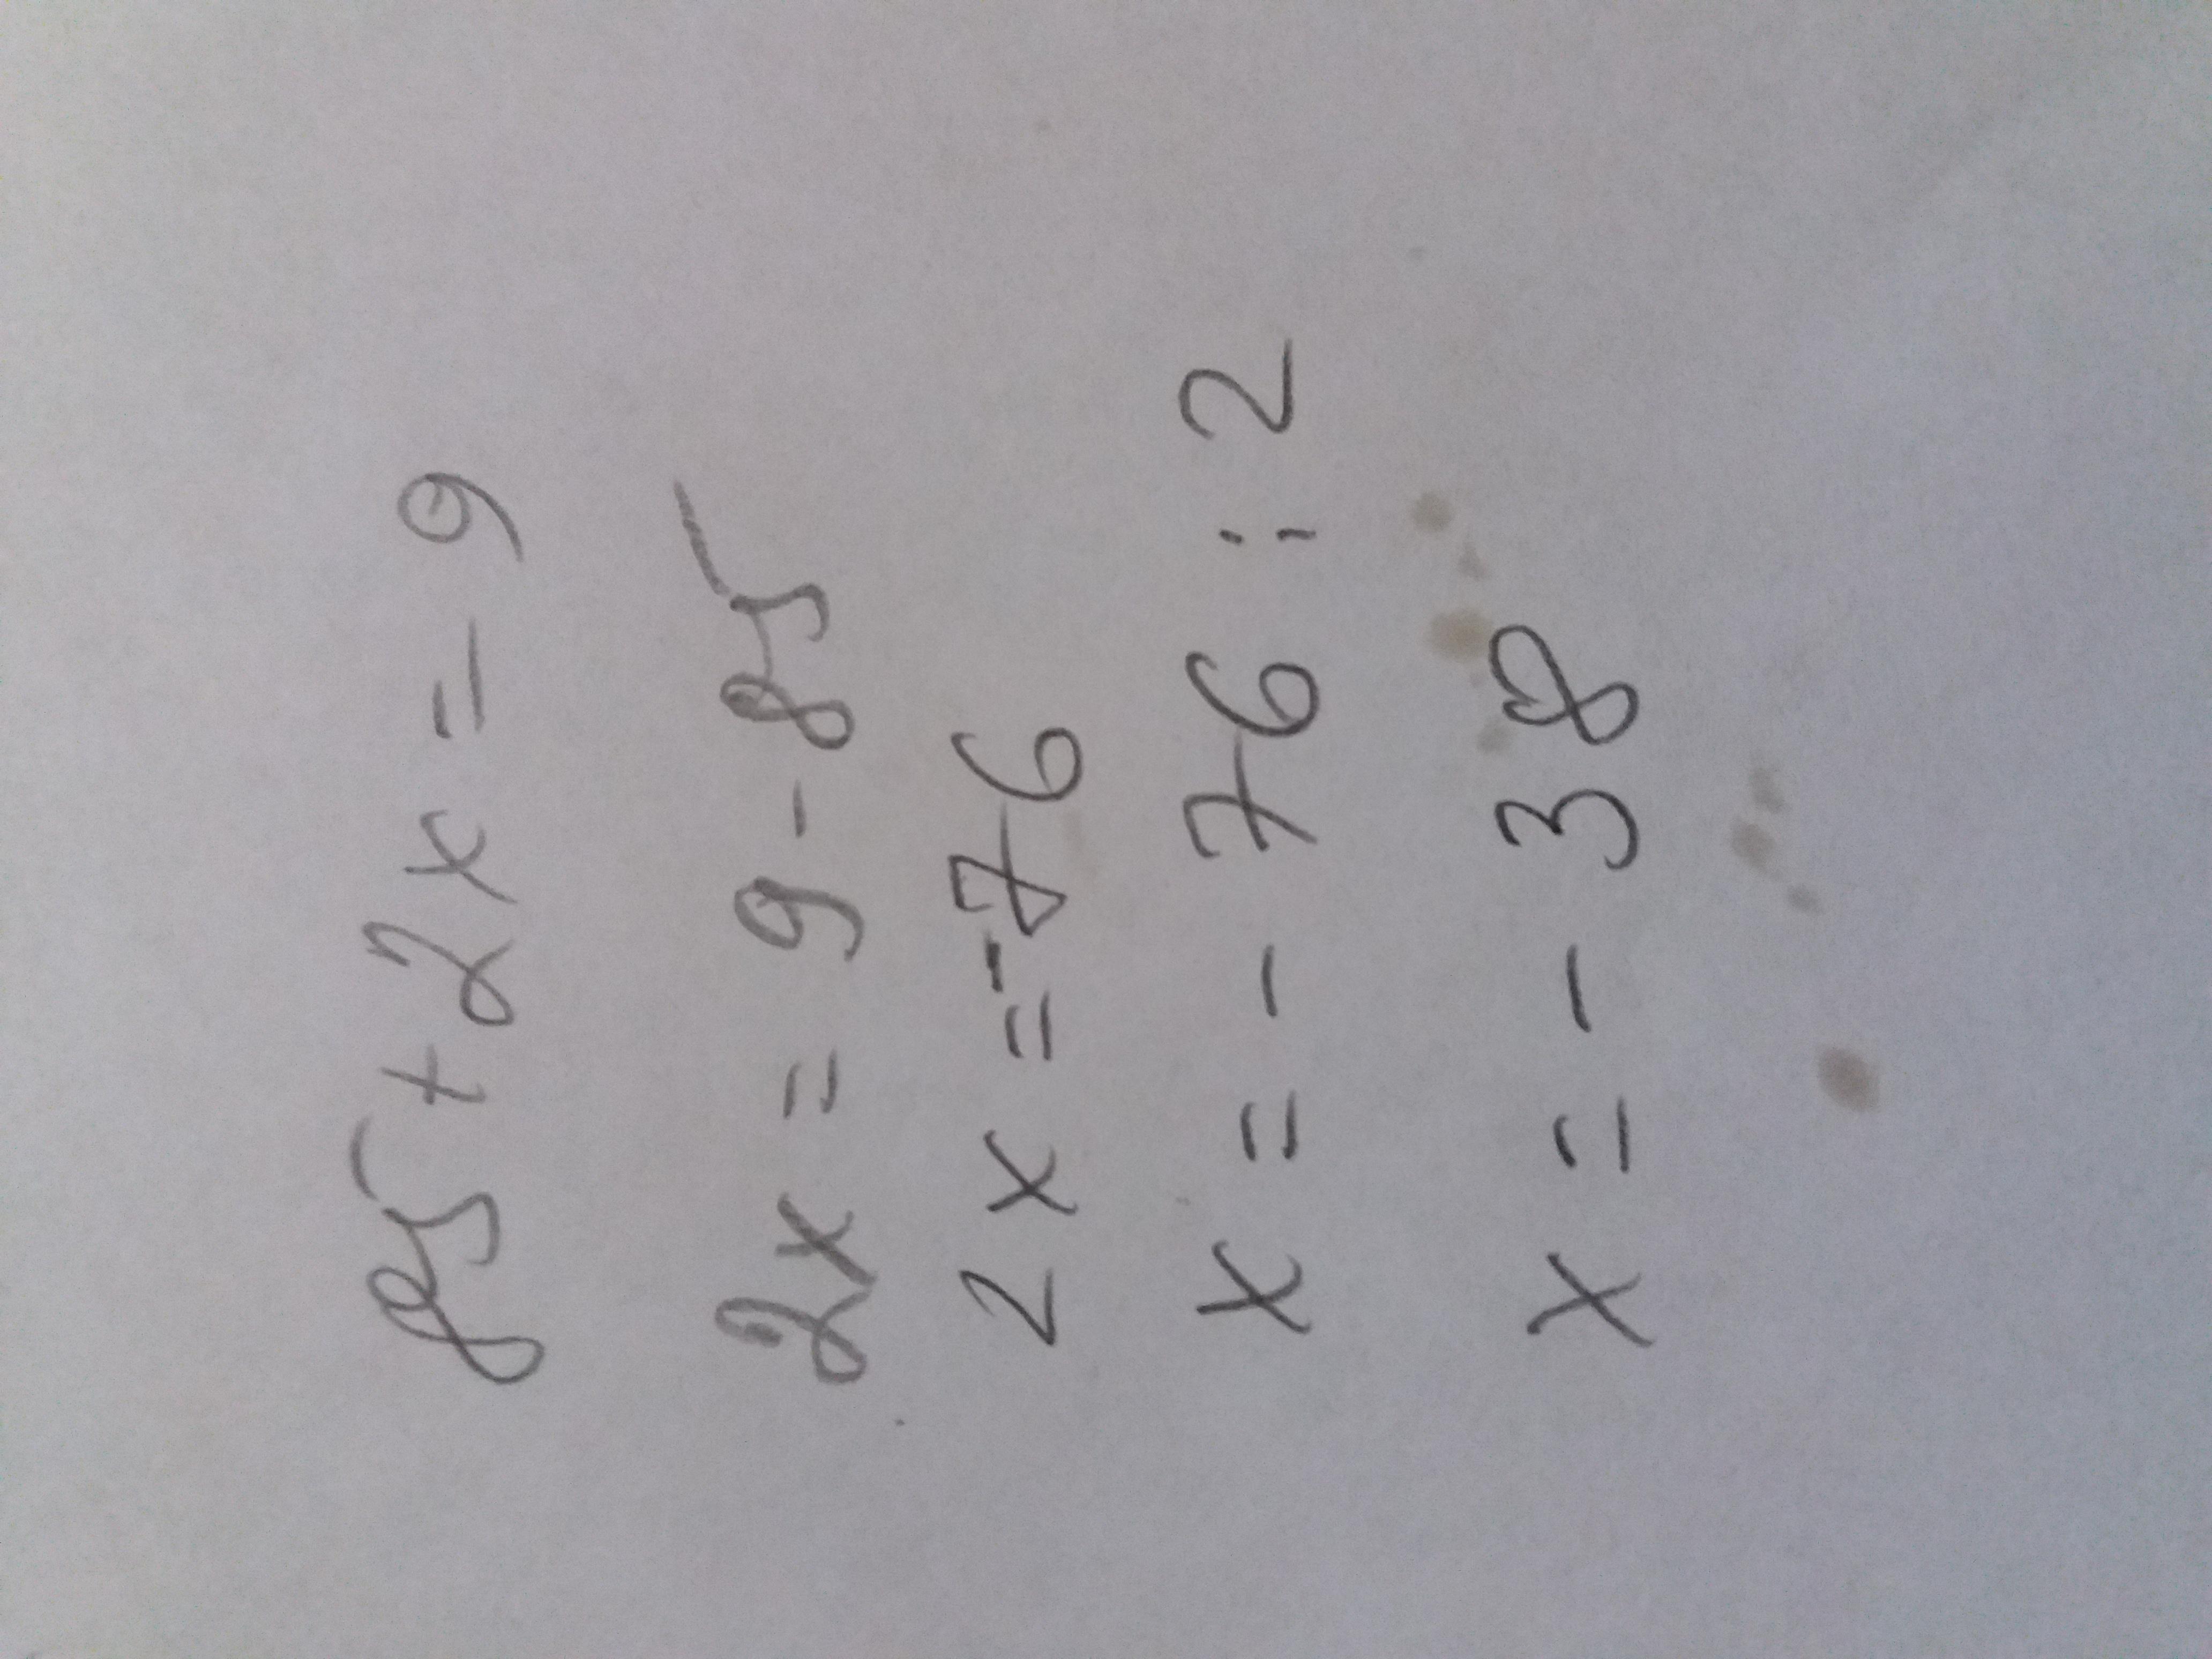 85 + 2x = 9
2x = 9 - 85
2x = -76
x = - 76 : 2
x = - 38